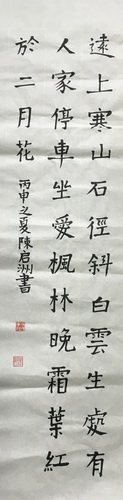 遠上寒山石徑斜白雲生處有
人家停車坐愛楓林晚霜葉紅
於二月花
丙申之夏陳启洲書